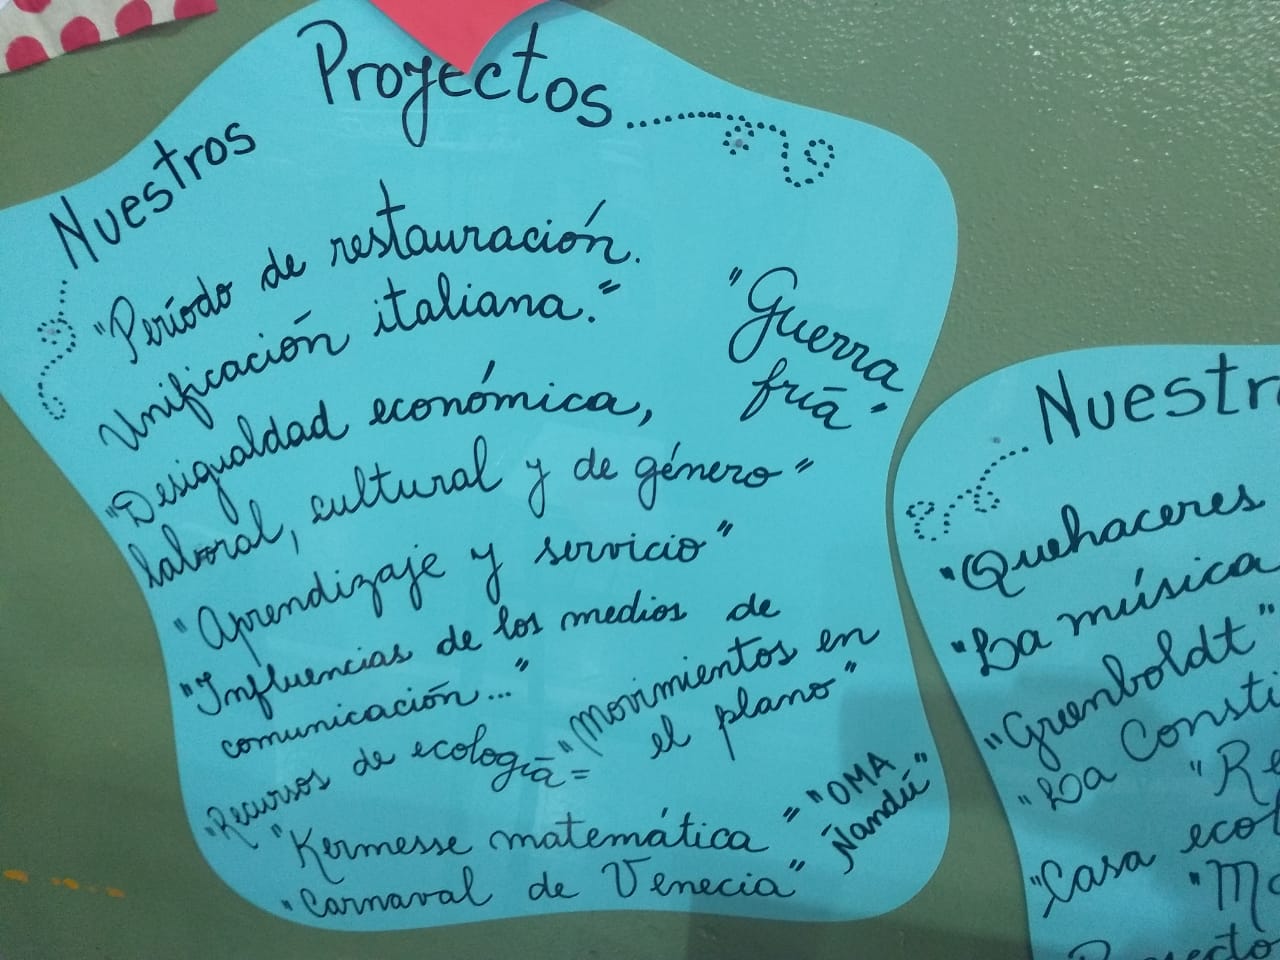 Nuestros Proyectos
"Período de restauración.
Unificación italiana."
"Guerra
fría"
"Desigualdad económica,
laboral, cultural y de género"
"Aprendizaje y servicio"
"Influencias de los medios de
comunicación..."
"Movimientos en
el plano"
"Recursos de ecología"
"Kermesse matemática"
"OMA
Ñandú"
"Carnaval de Venecia"
Nuestr
"Quehaceres
"La música
"Greenboldt"
"La Consti
"Re
"Casa ecol
"Ma
Proyecto